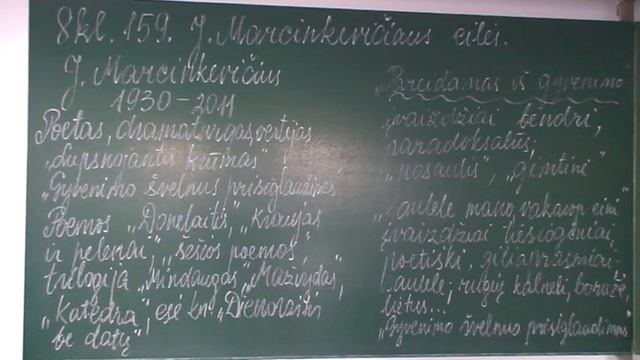 8kl. 159. J. Marcinkevičiaus eilės.
J. Marcinkevičius
1930-2011
Poetas, dramaturgas, vertėjas
kūrimas
„Gyvenimo švelnus prisiglaudimas
Poemos „Donelaitis", „Kraujas
ir pelenai", „Šešios poemos",
trilogija „Mindaugas", „Mažvydas",
„Katedra", esė kn. „Dienoraštis
be datų",
„Pareidamas iš gyvenimo
įvaizdžiai bendri,
paradoksalūs,
„pasaulis", „gimtinė"
„Saulele mano, vakarop eini"
įvaizdžiai tiesioginiai,
poetiški, giliaprasmiai:
saulele, rugių kalneli, boružė,
lietus...
„Gyvenimo švelnus prisiglaudimas